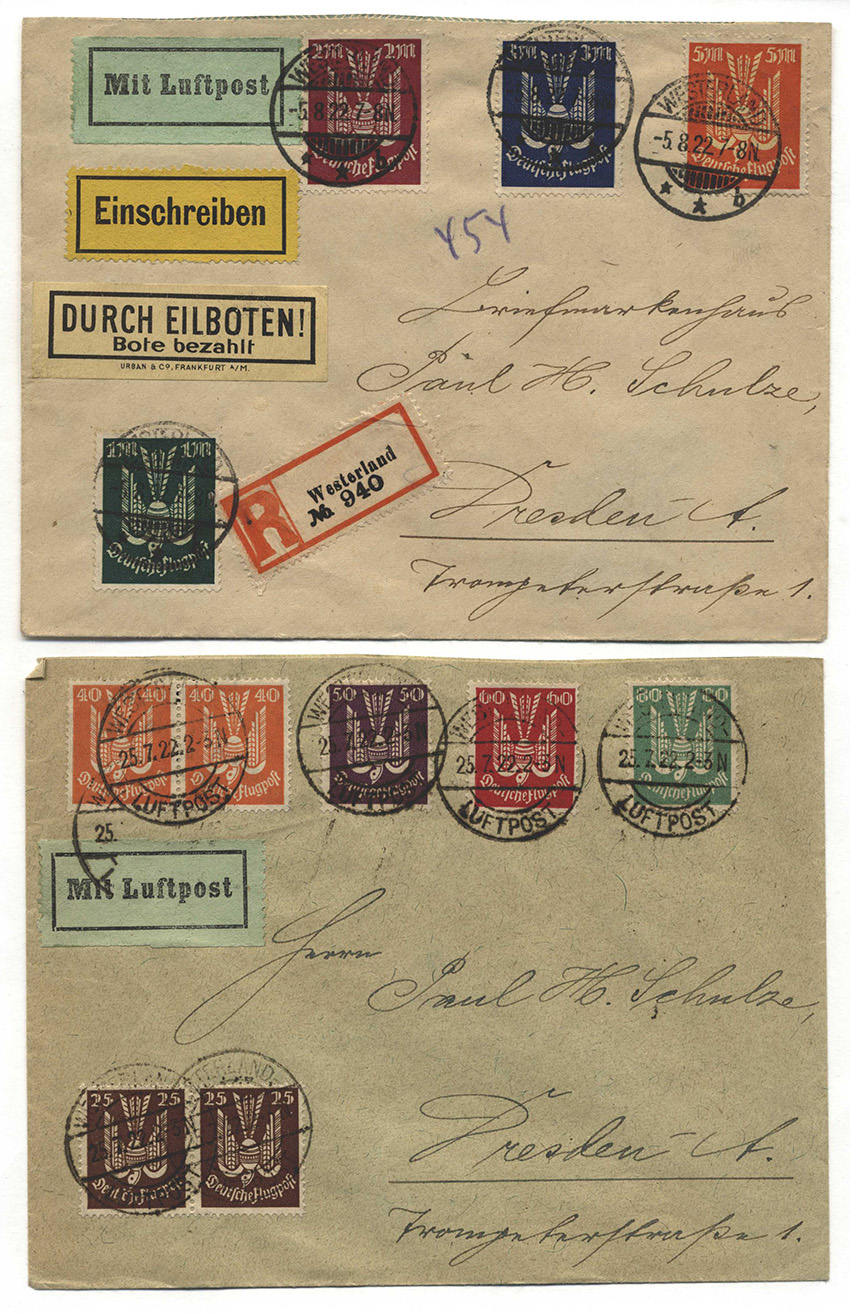 Mit Luftpost
2M 2M
3M 3M
5M 5M
Deutsche Flugpost
Deutsche Flugpost
Deutsche Flugpost
WESTERLAND
-5.8.22.7-8N
* * b
WESTERLAND
-5.8.22.7-8N
* * b
Einschreiben
454
DURCH EILBOTEN!
Bote bezahlt
URBAN & CO, FRANKFURT A/M.
Briefmarkenhaus
Paul H. Schulze,
1M 1M
Deutsche Flugpost
R
Westerland
No 940
Dresden-A.
Trompeterstraße 1.
40 40 40 40
50 50
60 60
80 80
Deutsche Flugpost
Deutsche Flugpost
Deutsche Flugpost
Deutsche Flugpost
Deutsche Flugpost
25.7.22.2-3N
LUFTPOST
25.7.22.2-3N
LUFTPOST
25.7.22.2-3N
LUFTPOST
25.7.22.2-3N
LUFTPOST
25.
Mit Luftpost
Herrn
Paul H. Schulze,
25 25 25 25
Deutsche Flugpost
Deutsche Flugpost
25.7.22.2-3N
Dresden-A.
Trompeterstraße 1.